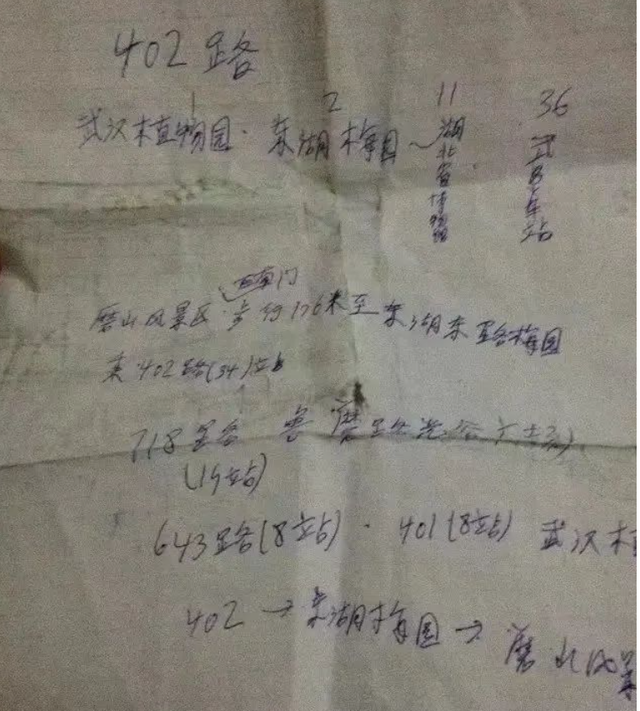 402路
2 11 36
武汉植物园·东湖梅园~湖北省博物馆 武昌火车站
西南门
磨山风景区 步行176米至东湖东路梅园
乘402路(34)站
718路 鲁磨路
(19站)
643路(8站)·401(8站) 武汉植
402→东湖梅园→磨山风景